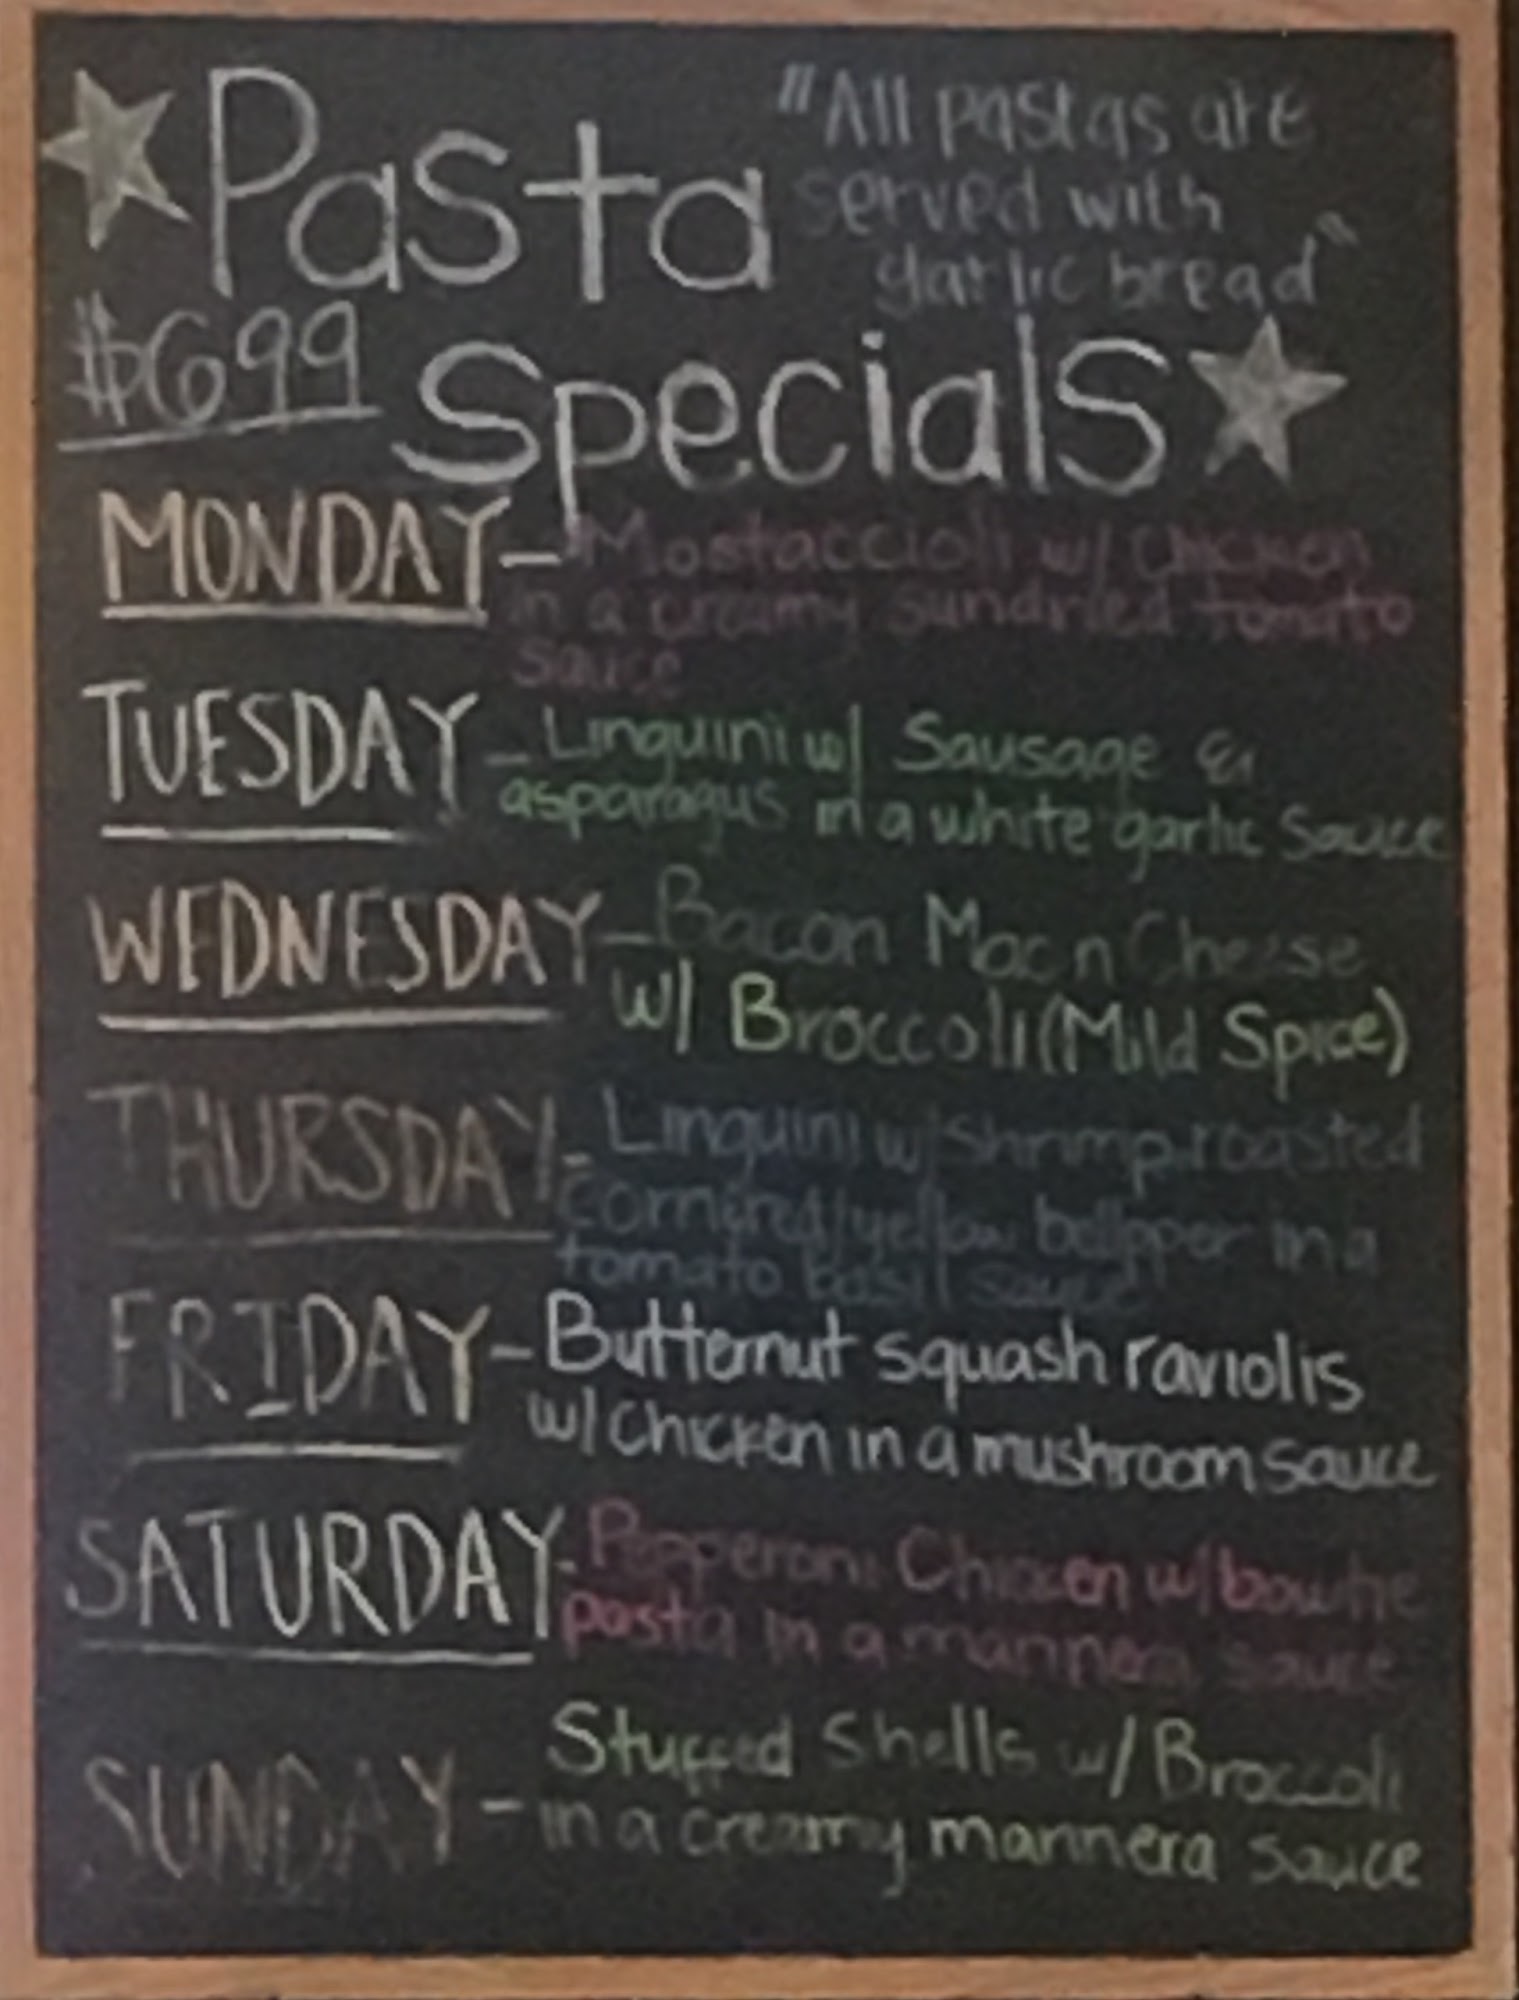 Pasta
"All pastas are
served with
garlic bread"
$6 99
Specials
MONDAY - Mostaccioli w/ chicken
in a creamy sundried tomato
sauce
TUESDAY - Linguini w/ Sausage &
asparagus in a white garlic sauce
WEDNESDAY - Bacon Mac n Cheese
w/ Broccoli (Mild Spice)
THURSDAY - Linguini w/ Shrimp, roasted
corn, red/yellow in a
tomato basil sauce
FRIDAY - Butternut squash raviolis
w/ chicken in a mushroom sauce
SATURDAY - Pepperoni Chicken w/ bowtie
pasta in a marinera sauce
SUNDAY - Stuffed Shells w/ Broccoli
in a creamy marinera sauce